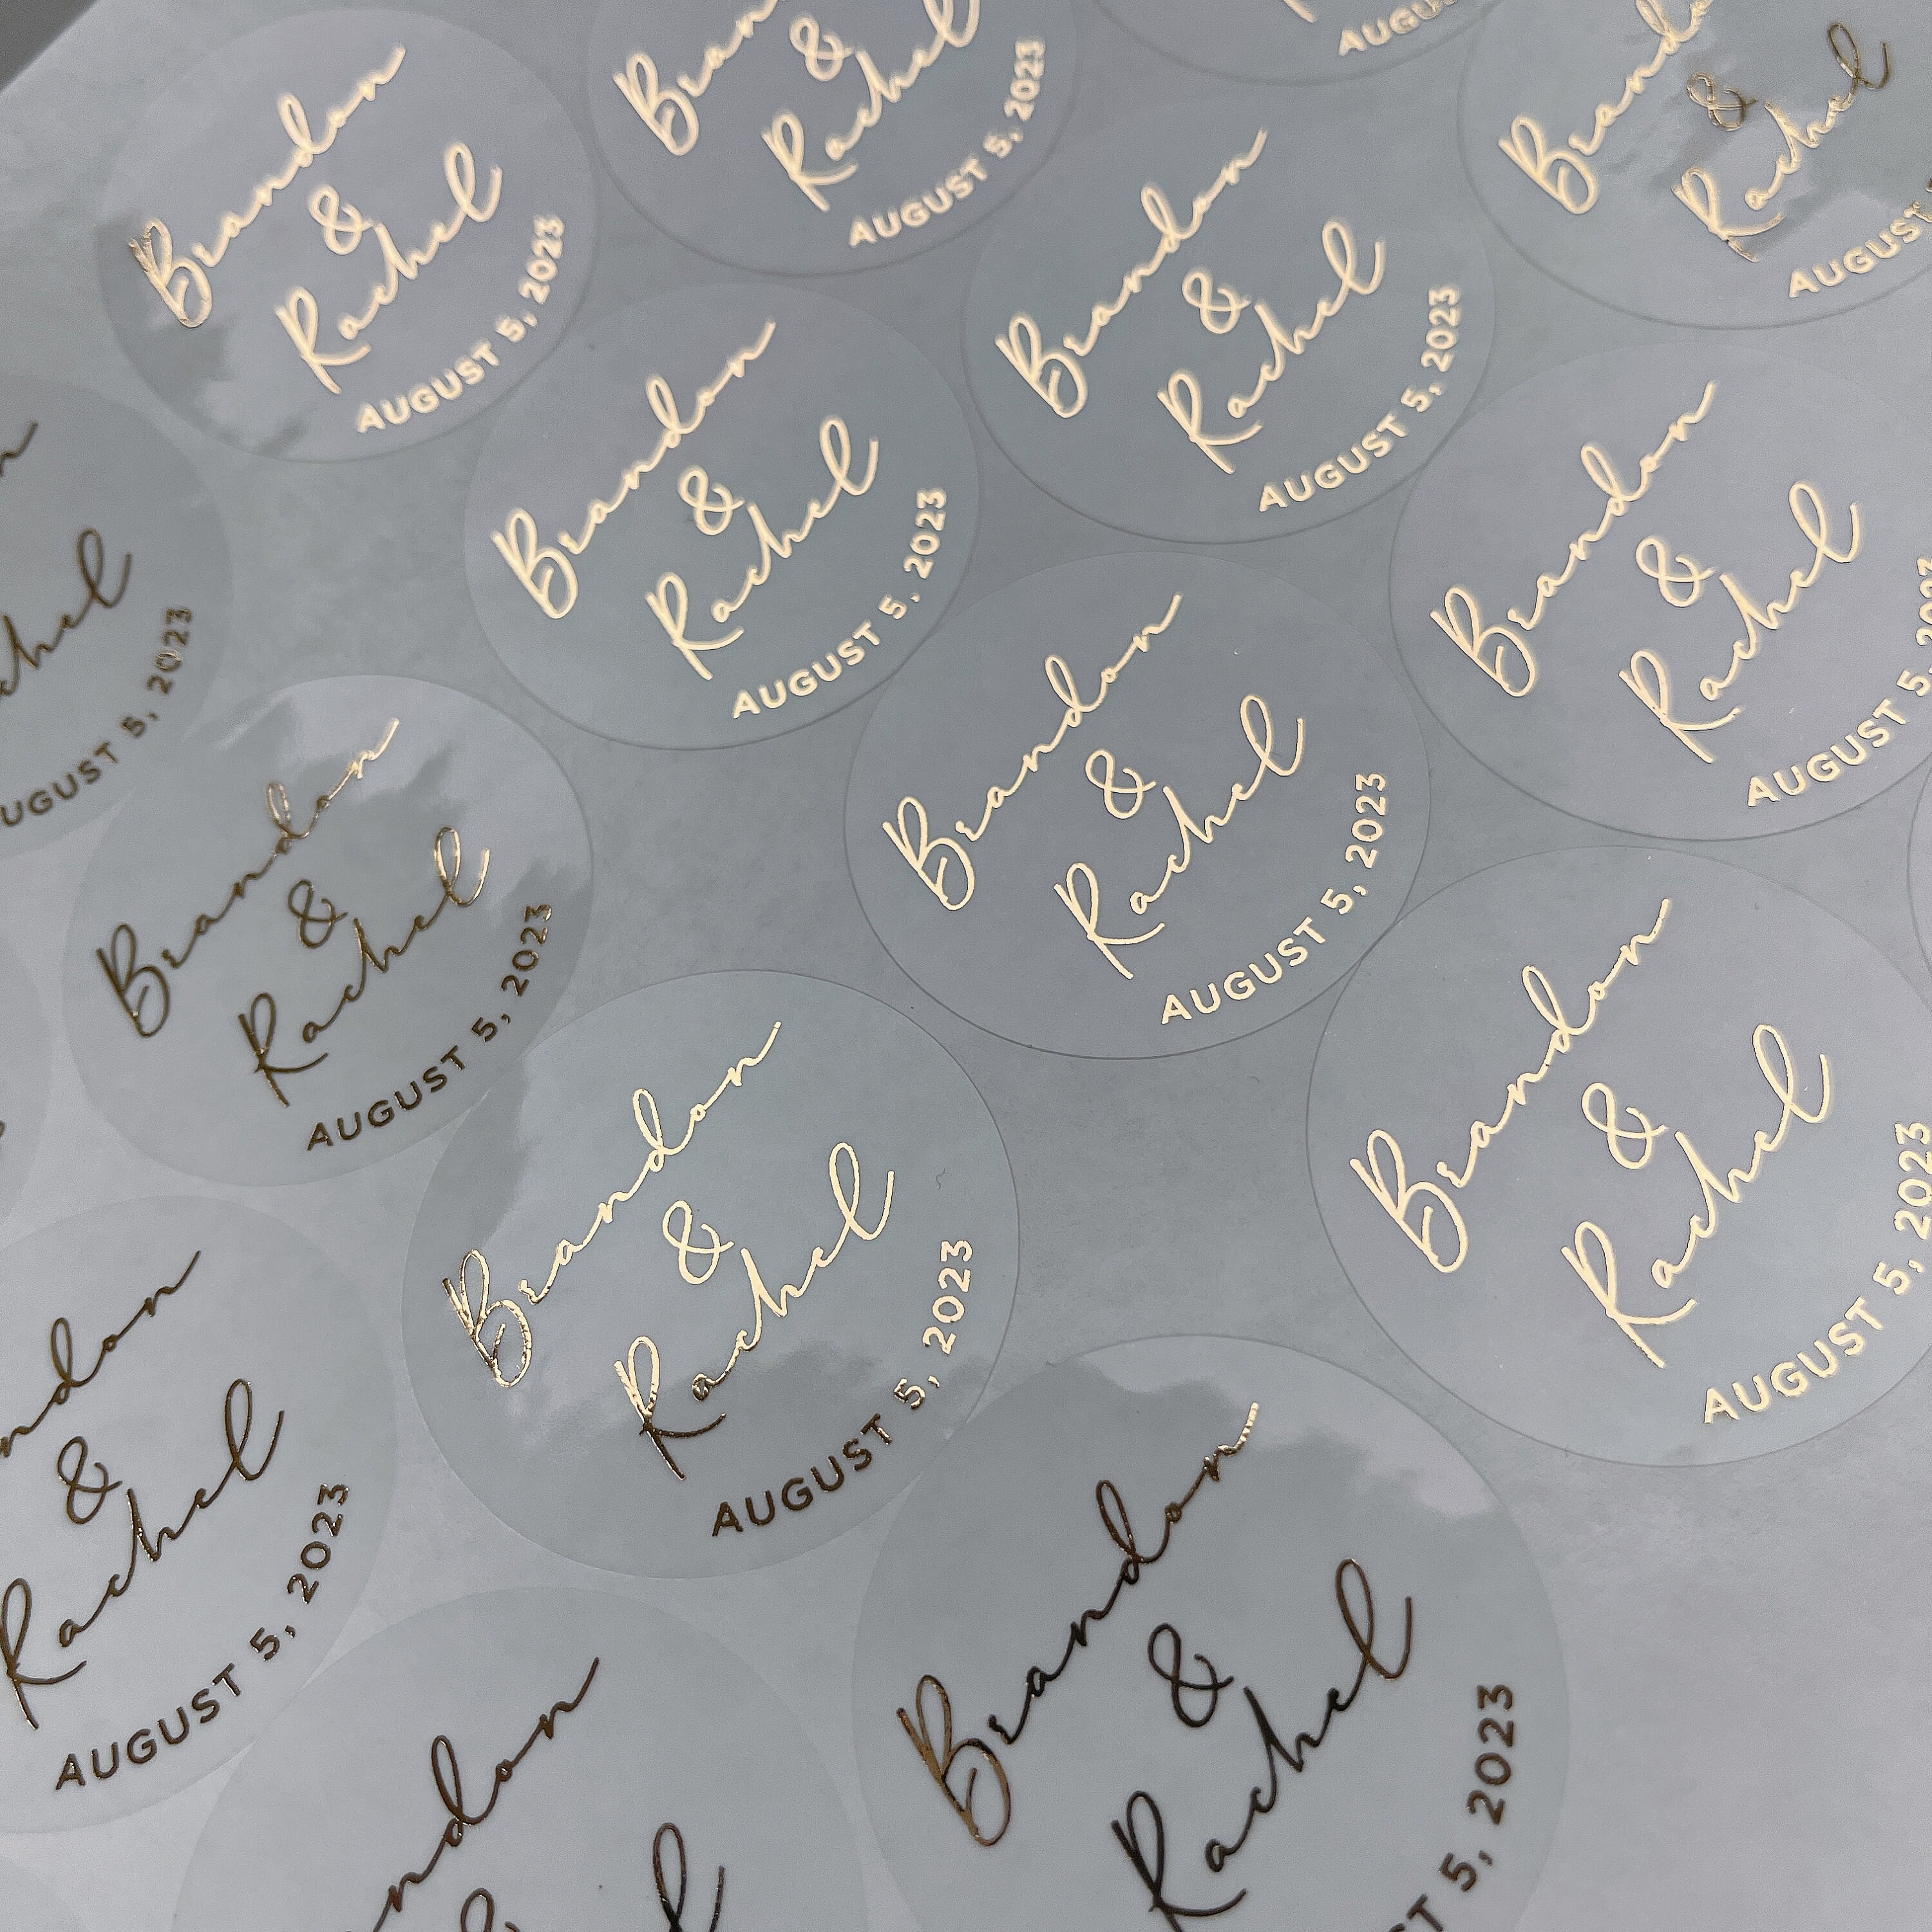 Brandon
&
Rachel
AUGUST 5, 2023
Bran
&
Rachel
AUGUST 5, 2023
AUGU
Brand
&
Rachel
AUGUST
Brandon
&
Rachel
AUGUST 5, 2023
Brandon
&
Rachel
AUGUST 5, 2023
Brandon
&
Rachel
AUGUST 5, 2023
n
chel
UGUST 5, 2023
Brandon
&
Rachel
AUGUST 5, 2023
Brandon
&
Rachel
AUGUST 5, 2023
Brandon
&
Rachel
AUGUST 5, 2023
Brandon
&
Rachel
AUGUST 5, 2023
ndon
&
Rachel
AUGUST 5, 2023
Brandon
&
Rachel
ST 5, 2023
ndon